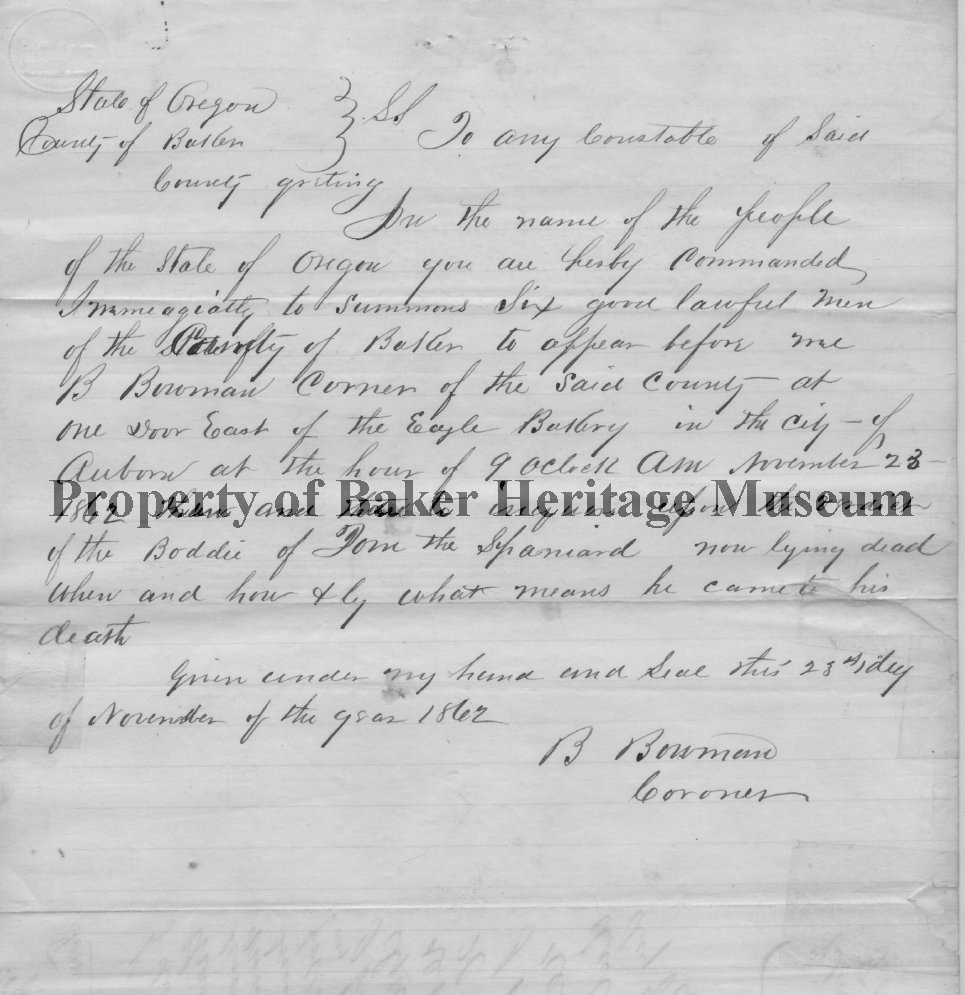 State of Oregon } SS
County of Baker } To any Constable of Said
County greting
In the name of the people
of the State of Oregon you are herby Commanded
Immeagiatly to Summons Six good lawful men
of the County of Baker to appear before me
B Bowman Corner of the Said County at
one door East of the Eagle Bakery in the city of
Auborn at the hour of 9 Oclock AM November 23
Property of Baker Heritage Museum
1862 then and there to inquire upon the
of the Boddie of Tom the Spaniard now lying dead
When and how & by what means he came to his
death
Given under my hand and Seal this 23rd day
of November of the year 1862
B Bowman
Coroner